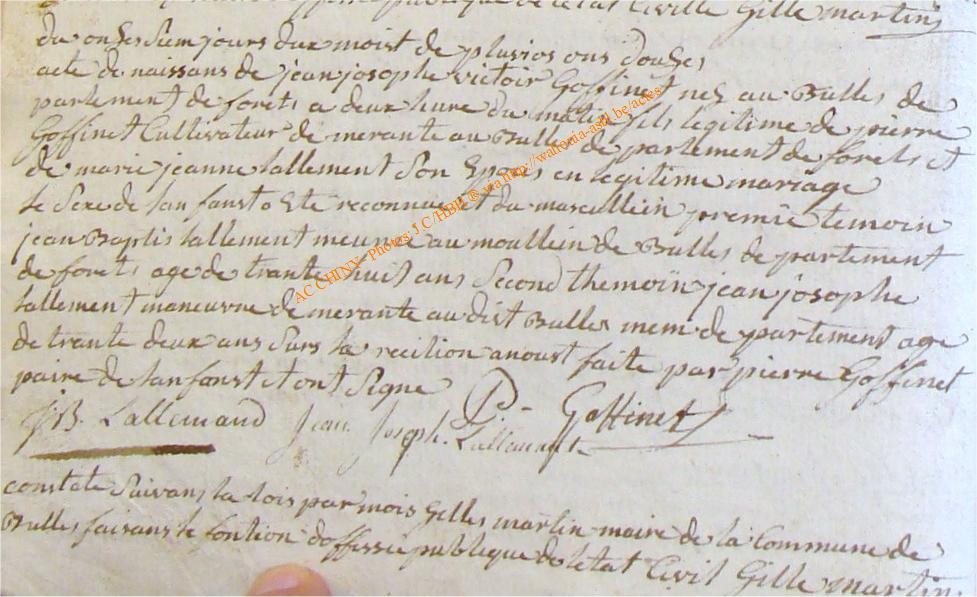 publique de letat Civille Gille martin
du onzessiem jours dux moist de pluvios ons douzes
acte de naissans de jean josophe victoir Goffinet nez au Bulles de
partement de forets a deux heure du matin fils legitime de pierre
Goffinet Cultivateur de merante au Bulles de partement de forets et
de marie jeanne lallement Son Epous en legitime mariage
le Sexe de lanfanst o Ete reconnue Et du mascullein premie temoin
jean Baptis lallement meunie au moullein de Bulles de partement
de forets age de trante huit ans Second themoin jean josophe
lallement maneuvre de merante au dist Bulles mem de partement age
de trante deux ans Surs la recilion anoust faite par pierre Goffinet
paire de lanfanst et ont Signe
J B. Lallemand Jean Joseph Lallemant P. Goffinet
constate Suivans la lois par mois Gilles martin maire de la Commune de
Bulles faisans le fontion doffissie publique de letat Civil Gille martin
AC CHINY - Photos: J C/HBH @ via http://wallonia-asbl.be/actes